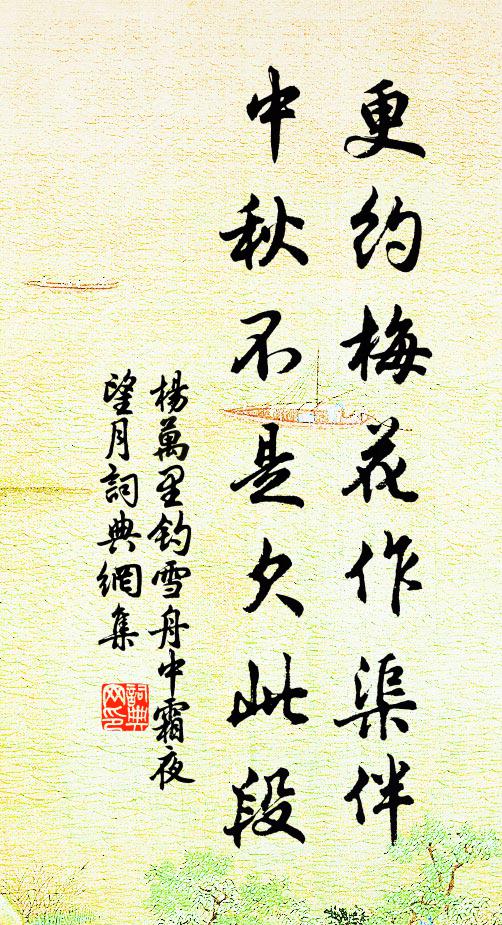 更约梅花作渠伴
中秋不是欠此段
楊萬里釣雪舟中霜夜
望月詞典網集
詞典
网印